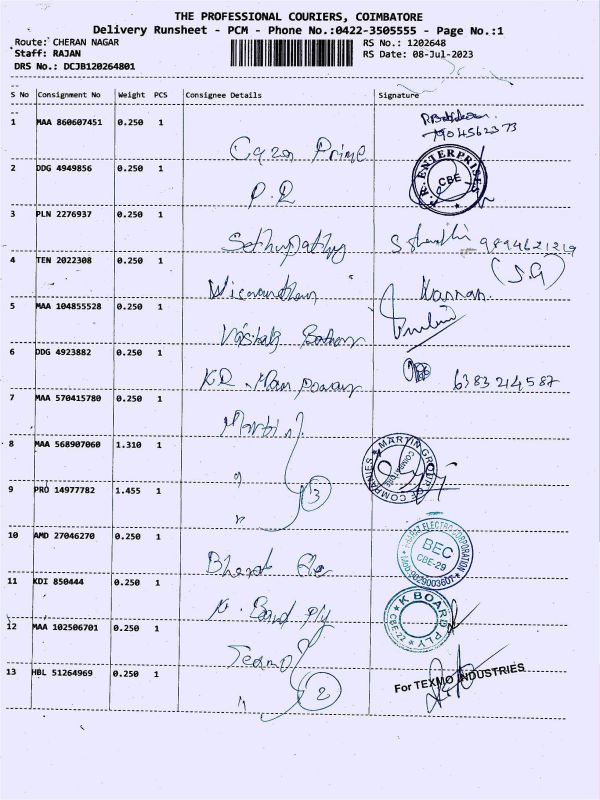 THE PROFESSIONAL COURIERS, COIMBATORE
Delivery Runsheet - PCM - Phone No.:0422-3505555 - Page No.:1
Route: CHERAN NAGAR RS No.: 1202648
Staff: RAJAN RS Date: 08-Jul-2023
DRS No.: DCJB120264801
S No Consignment No Weight PCS Consignee Details Signature
1 MAA 860607451 0.250 1
7904562373
Prime
2 DDG 4949856 0.250 1
R. ENTERPRISES CBE
P.R
3 PLN 2276937 0.250 1
Sethupathy 9894621219
4 TEN 2022308 0.250 1
(S.G)
Kannan.
5 MAA 104855528 0.250 1
6 DDG 4923882 0.250 1
KR 6383214587
7 MAA 570415780 0.250 1
Martin
8 MAA 568907060 1.310 1
MARTIN GROUP OF COMPANIES COIMBATORE
"
9 PRO 14977782 1.455 1
3
"
10 AMD 27046270 0.250 1
ELECTRO CORPORATION BEC CBE-29
Bharat Ele
11 KDI 850444 0.250 1
K BOARD PLY CBE-22
K. Board Ply
12 MAA 102506701 0.250 1
Texmo
13 HBL 51264969 0.250 1
For TEXMO INDUSTRIES
" 2